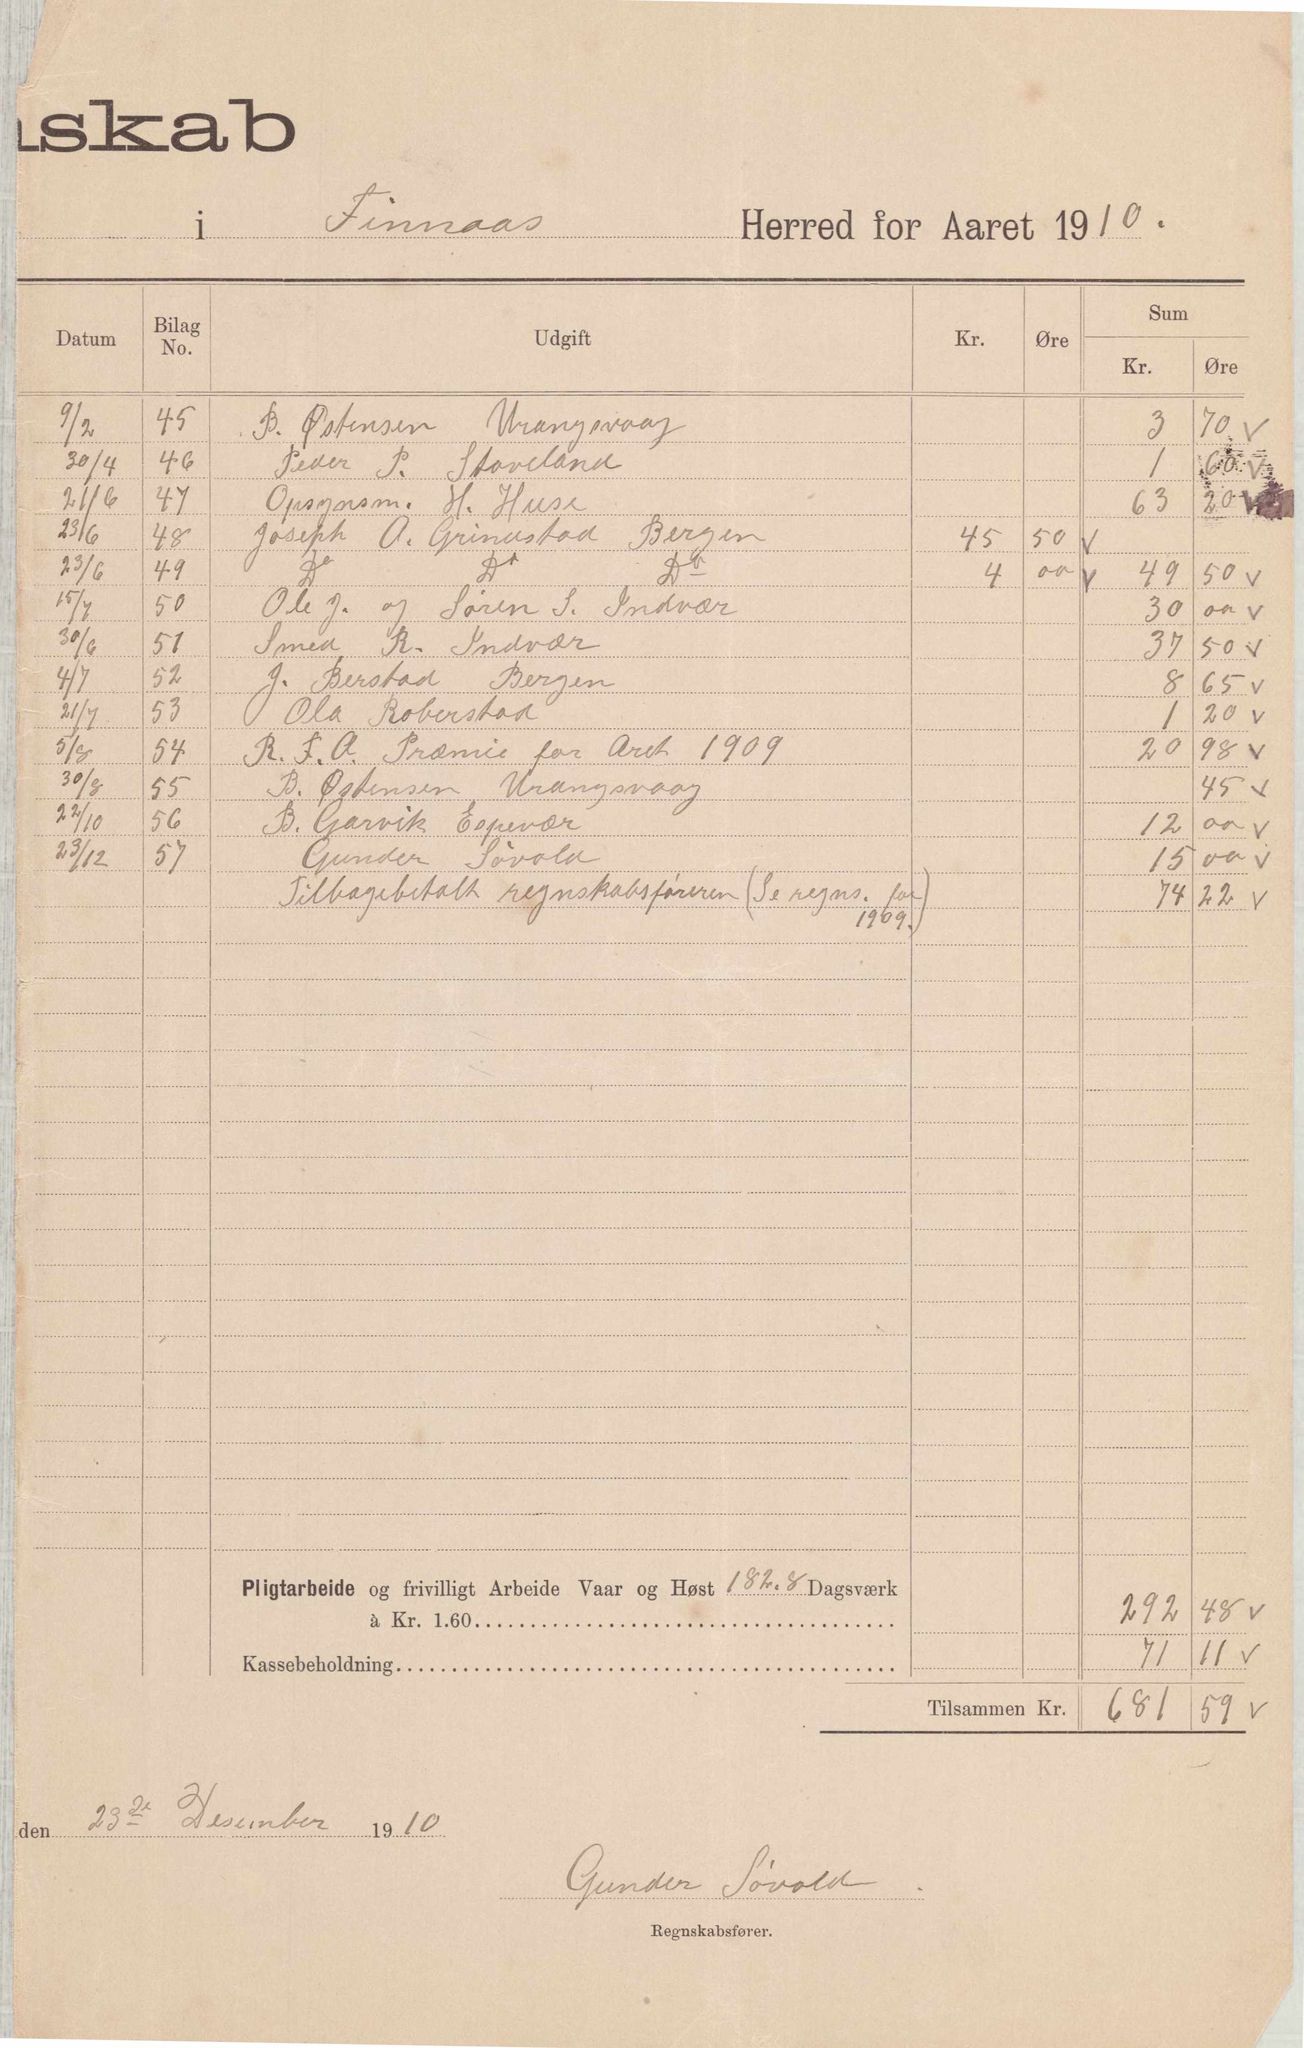 nskab
i Finnaas Herred for Aaret 1910.
Datum Bilag No. Udgift Kr. Øre Sum Kr. Øre
9/2 45 B. Østensen Urangsvaag 3 70 v
30/4 46 Peder P. Stoveland 1 60 v
21/6 47 Opsynsm. H. Huse 63 20 v
23/6 48 Joseph A. Grindstad Bergen 45 50 v
23/6 49 Do Do Do 4 00 v 49 50 v
15/7 50 Ole J. og Søren S. Indvær 30 00 v
30/6 51 Smed R. Indvær 37 50 v
4/7 52 J. Berstad Bergen 8 65 v
21/7 53 Ola Roberstad 1 20 v
5/8 54 R. F. A. Præmie for Aret 1909 20 98 v
30/8 55 B. Østensen Urangsvaag 45 v
22/10 56 B. Garvik Espevær 12 00 v
23/12 57 Gunder Søvold 15 00 v
Tilbagebetalt regnskabsføreren (Se regns. for 74 22 v
1909.)
Pligtarbeide og frivilligt Arbeide Vaar og Høst 182.8 Dagsværk
à Kr. 1.60 292 48 v
Kassebeholdning 71 11 v
Tilsammen Kr. 681 59 v
den 23de Desember 1910
Gunder Søvold.
Regnskabsfører.